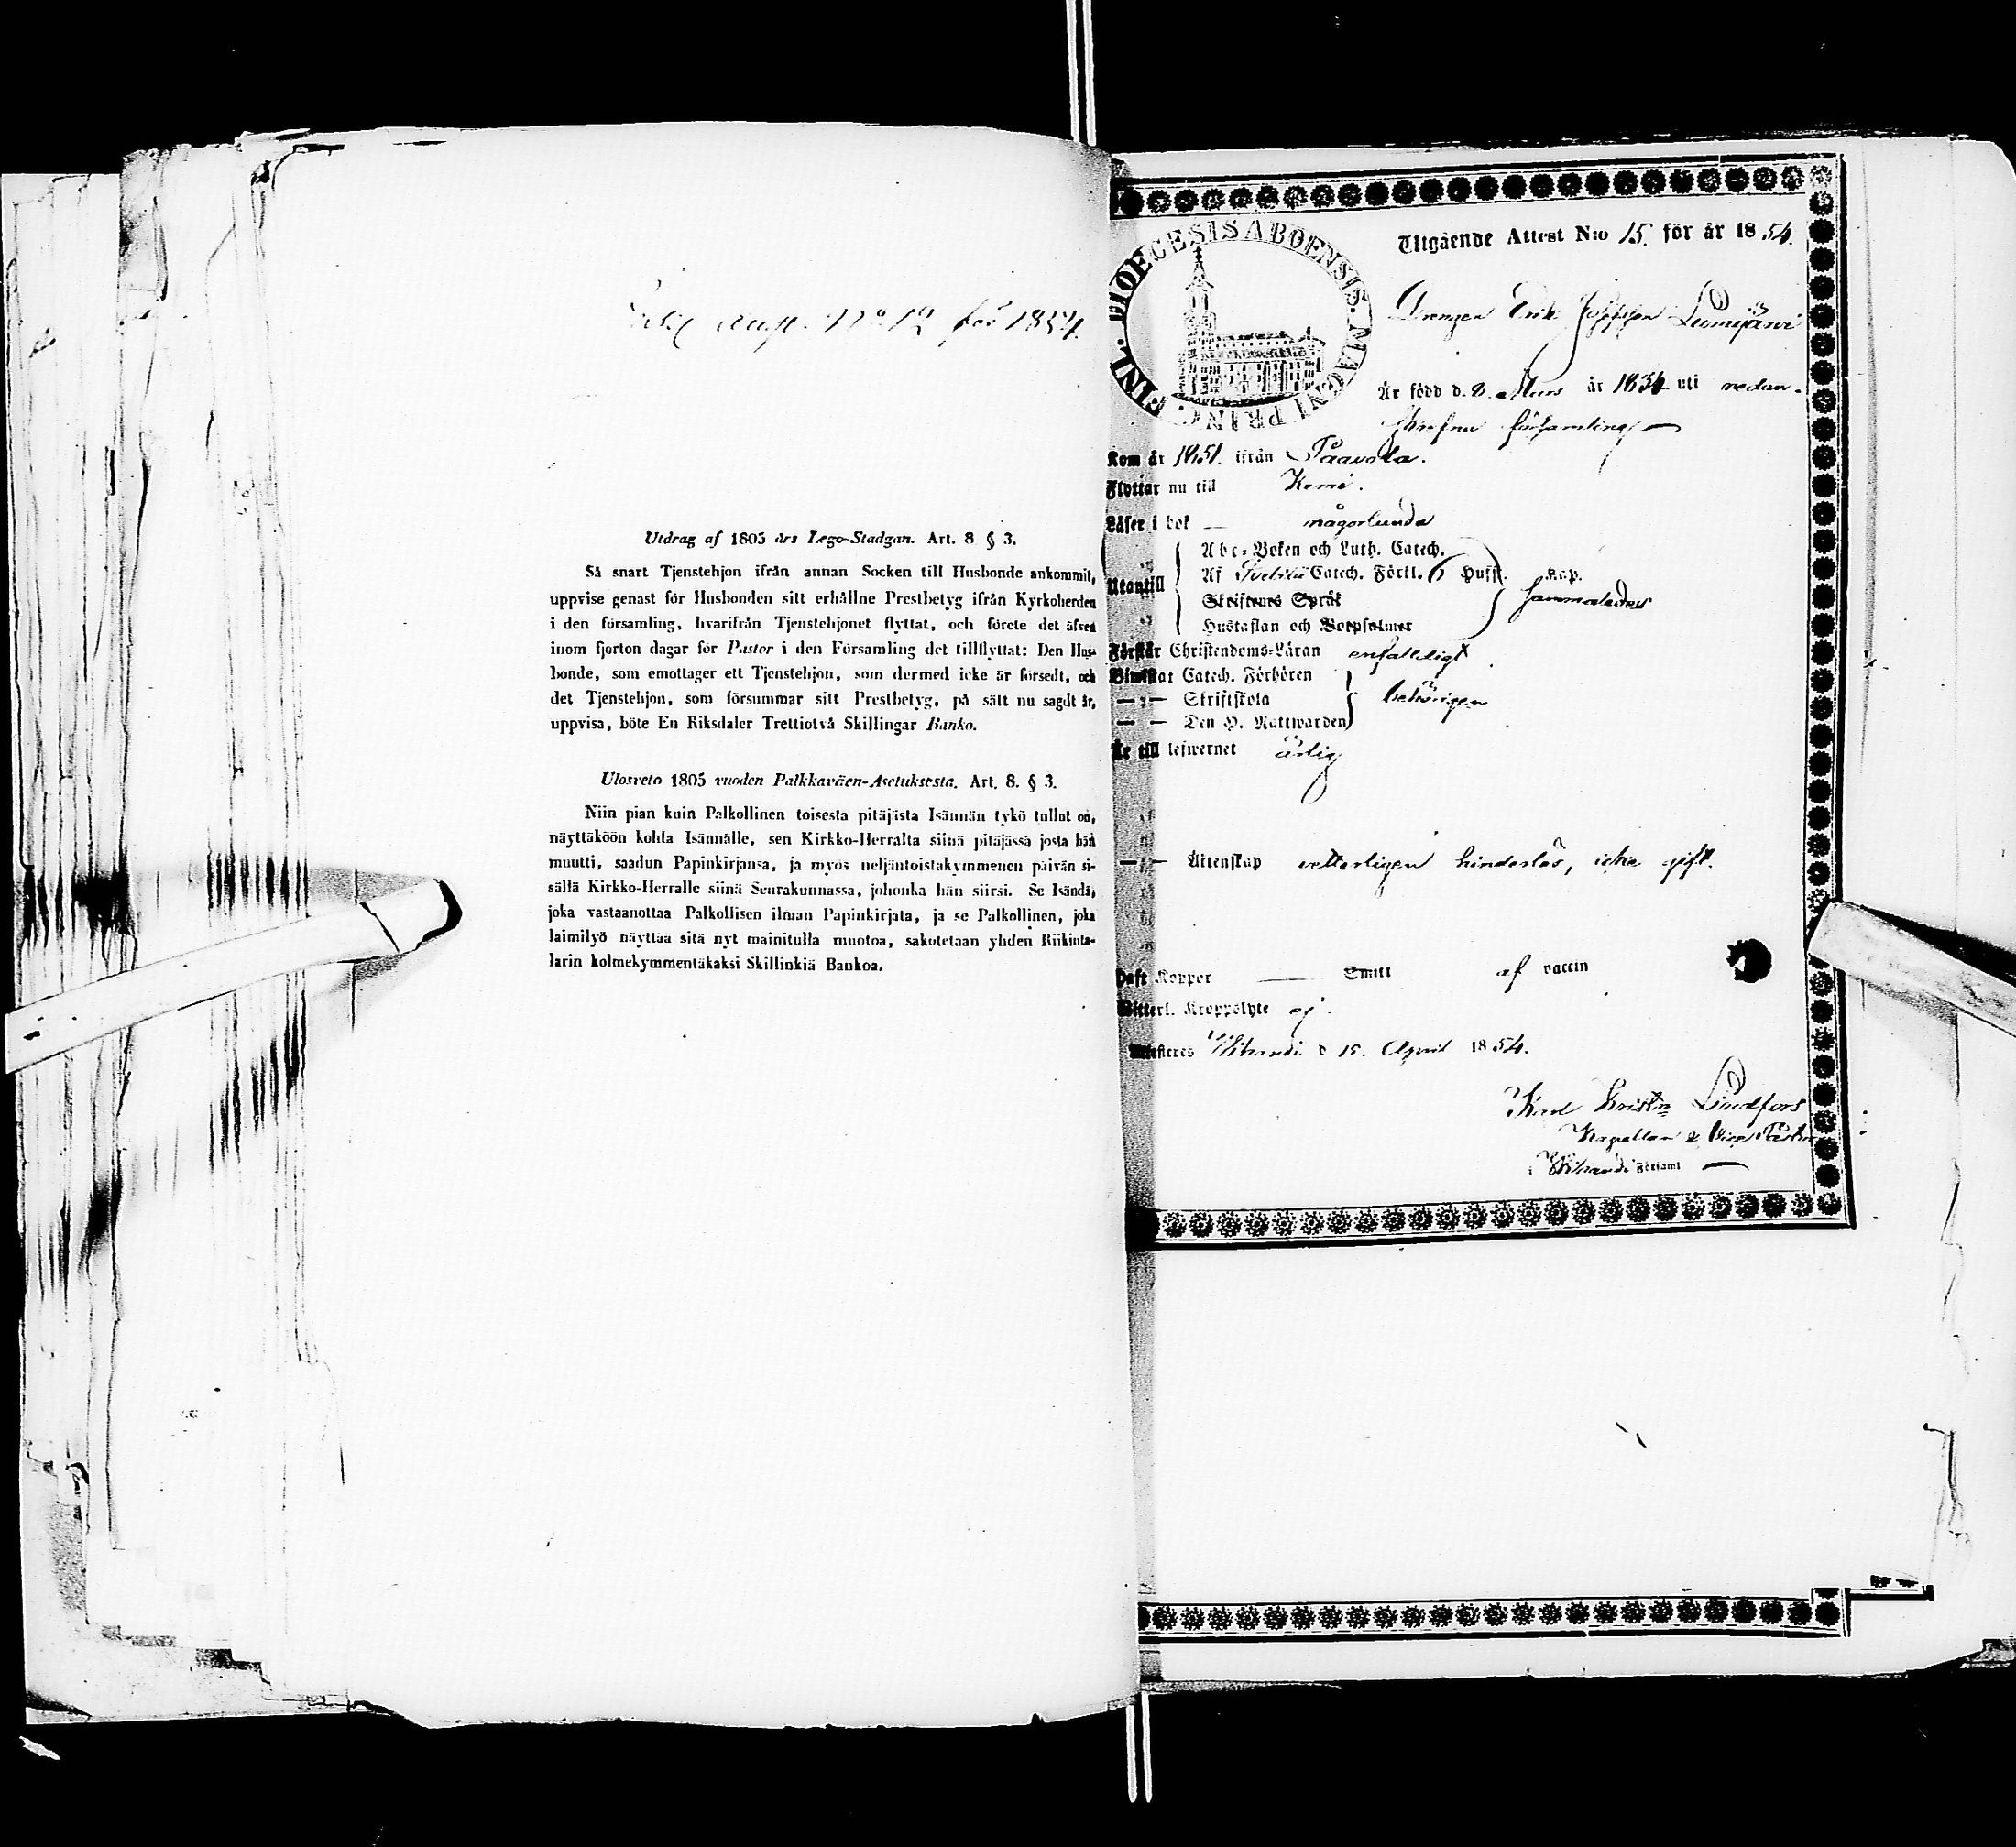 N:o 12 för 1854.
Utdrag af 1805 års Lego-Stadgan. Art. 8 § 3.
Så snart Tjenstehjon ifrån annan Socken till Husbonde ankommit,
uppvise genast för Husbonden sitt erhållne Prestbetyg ifrån Kyrkoherden
i den församling, hvarifrån Tjenstehjonet flyttat, och förete det äfven
inom fjorton dagar för Pastor i den Församling det tillflyttat: Den Hus-
bonde, som emottager ett Tjenstehjon, som dermed icke är försedt, och
det Tjenstehjon, som försummar sitt Prestbetyg, på sätt nu sagdt är,
uppvisa, böte En Riksdaler Trettiotvå Skillingar Banko.
Ulosveto 1805 vuoden Palkkaväen-Asetuksesta. Art. 8. § 3.
Niin pian kuin Palkollinen toisesta pitäjästä Isännän tykö tullut on,
näyttäköön kohta Isännälle, sen Kirkko-Herralta siinä pitäjässä josta hän
muutti, saadun Papinkirjansa, ja myös neljäntoistakymmenen päivän si-
sällä Kirkko-Herralle siinä Seurakunnassa, johonka hän siirsi. Se Isändä,
joka vastaanottaa Palkollisen ilman Papinkirjata, ja se Palkollinen, joka
laimilyö näyttää sitä nyt mainitulla muotoa, sakotetaan yhden Riikinta-
larin kolmekymmentäkaksi Skillinkiä Bankoa.
FINL. DIOECESIS ABOENSIS. MAGNI PRINC.
Utgående Attest N:o 15. för år 1854.
Drengen Erik Josefsson Lumijärvi
Är född d. 2. Mars år 1834 uti nedan-
skrefne församling
Kom år 1851. ifrån Paavola.
Flyttar nu till Kemi.
Läser i bok någorlunda
Utantill
Abc-Boken och Luth. Catech.
Af Svebilii Catech. Förkl. 6 Hufst. Kap.
Skriftenes Språk
sammaledes
Hustaflan och Botpsalmer
Förstår Christendoms-Läran enfaldeligt
Biwistat Catech. Förhören
— " — Skriftskola
behörigen
— — Den H. Nattwarden
Är till lefwernet ärlig
— " — Äktenskap vetterligen hinderlös, icke gift.
Haft Koppor Smitt af vaccin
Witterl. Kroppslyte ej.
Attesteras Wihandi d 15. April 1854.
Karl Kristin Lindfors
Kapellan & Vice Pastor
i Wihandi Församl